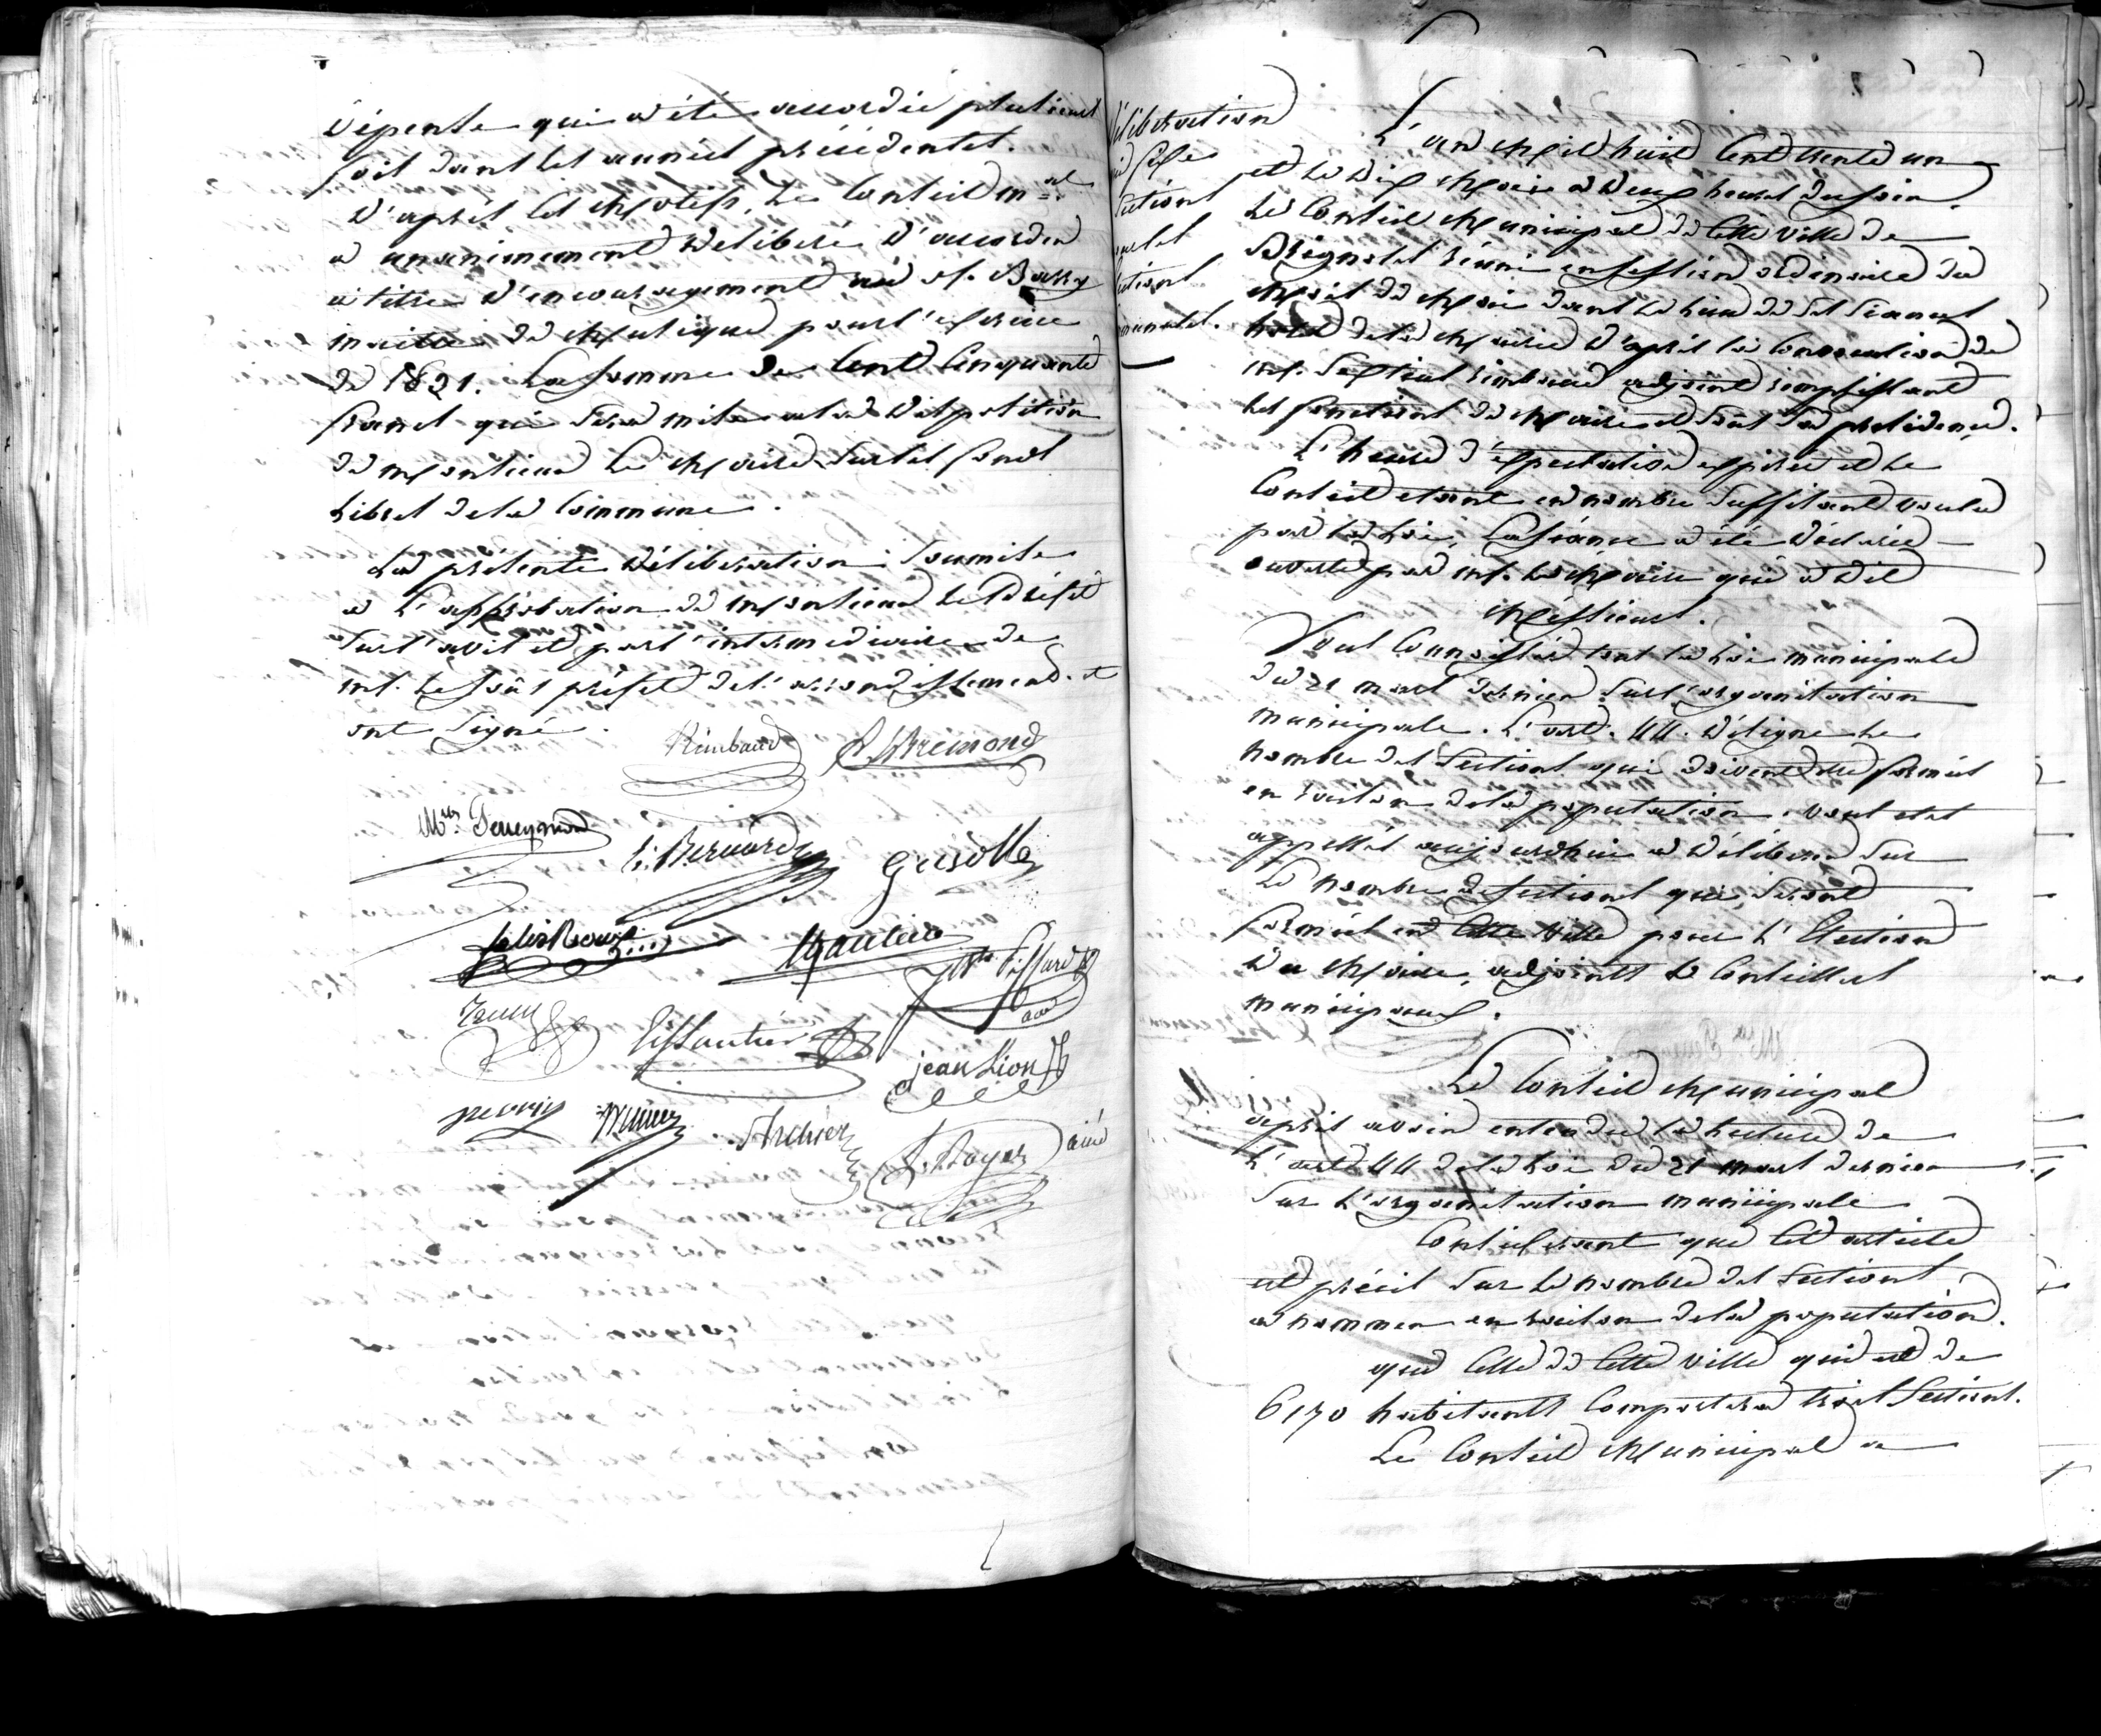 Dépense qui a été accordée plusieurs
fois dans les années précédentes.
D'après ces Motifs, Le Conseil m.al
a unanimement délibéré d'accorder
à titre d'encouragement au Sr. Barry
maitre de Musique pour l'exercice
de 1831. La somme de Cent Cinquante
francs qui sera mise à la disposition
de Monsieur Le Maire sur les fonds
Libres de la Commune.
La présente délibération soumise
à L'approbation de Monsieur Le Préfet
sur l'avis et par l'intermédiaire de
mr. Le Sous préfet de l'arrondissement. et
ont signé.
Rimbaud Bremond
Bernard
Grisolle
Felix Roux
Gautier
jean Lion
Archier
Boyer ainé
Délibération
Sections
L'an Mil huit Cent trente un
et Le dix Mai à deux heures du soir.
Le Conseil Municipal de Cette Ville de
Brignoles réuni en session ordinaire du
Mois de Mai dans Le Lieu de ses séances
hotel de la Mairie d'après La Convocation de
mr. Rimbaud adjoint remplissant
les fonctions de Maire et sous sa présidence.
L'heure d'expectation expirée et Le
Conseil étant en nombre suffisant voulu
par La Loi, La séance a été déclarée
ouverte par mr. Le Maire qui a dit
Messieurs.
Vous Connaissez tous La Loi municipale
du 21 mars dernier sur l'organisation
municipale. L'art. 44. désigne Le
nombre des Sections qui doivent etre formées
en raison de la population. vous etes
appellés aujourdhui à délibérer sur
Le nombre de sections qui seront
formées en Cette Ville pour L'Election
des Maire, adjoints et Conseillers
municipaux.
Le Conseil Municipal
après avoir entendu La Lecture de
L'art 44 de la Loi du 21 mars dernier
sur L'organisation municipale
Considérant que Cet article
est précis sur Le nombre des Sections
à nommer en raison de la population.
que Celle de Cette Ville qui est de
6170 habitants Comportera trois Sections.
Le Conseil Municipal a